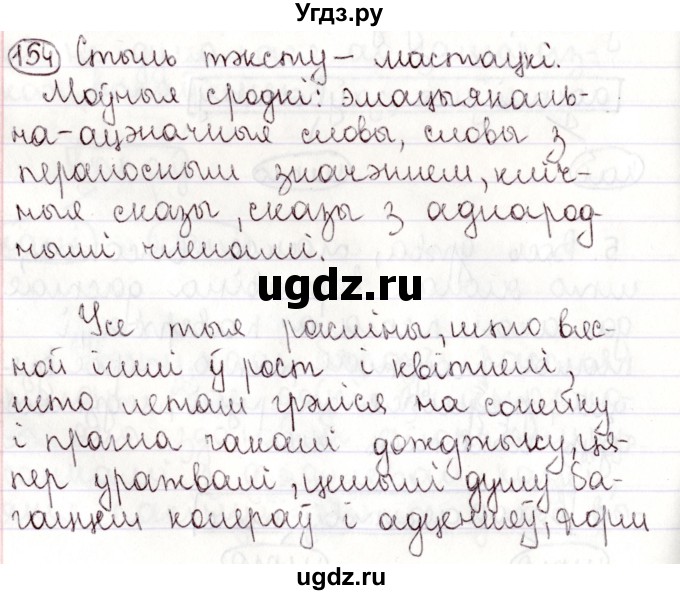 Угдз.ру
154 Стыль тэксту – мастацкі.
Моўныя сродкі: эмацыяналь-
на-ацэначныя словы, словы з
пераносным значэннем, кліч-
ныя сказы, сказы з аднарод-
нымі членамі.
ugdz.ru
Усе тыя расліны, што вяс-
ной ішлі ў рост і квітнелі,
што летам грэліся на сонейку
і прагна чакалі дожджыку, ця-
пер уражвалі, цешылі душу ба-
гаццем колераў і адценняў, форм
ugdz.ru